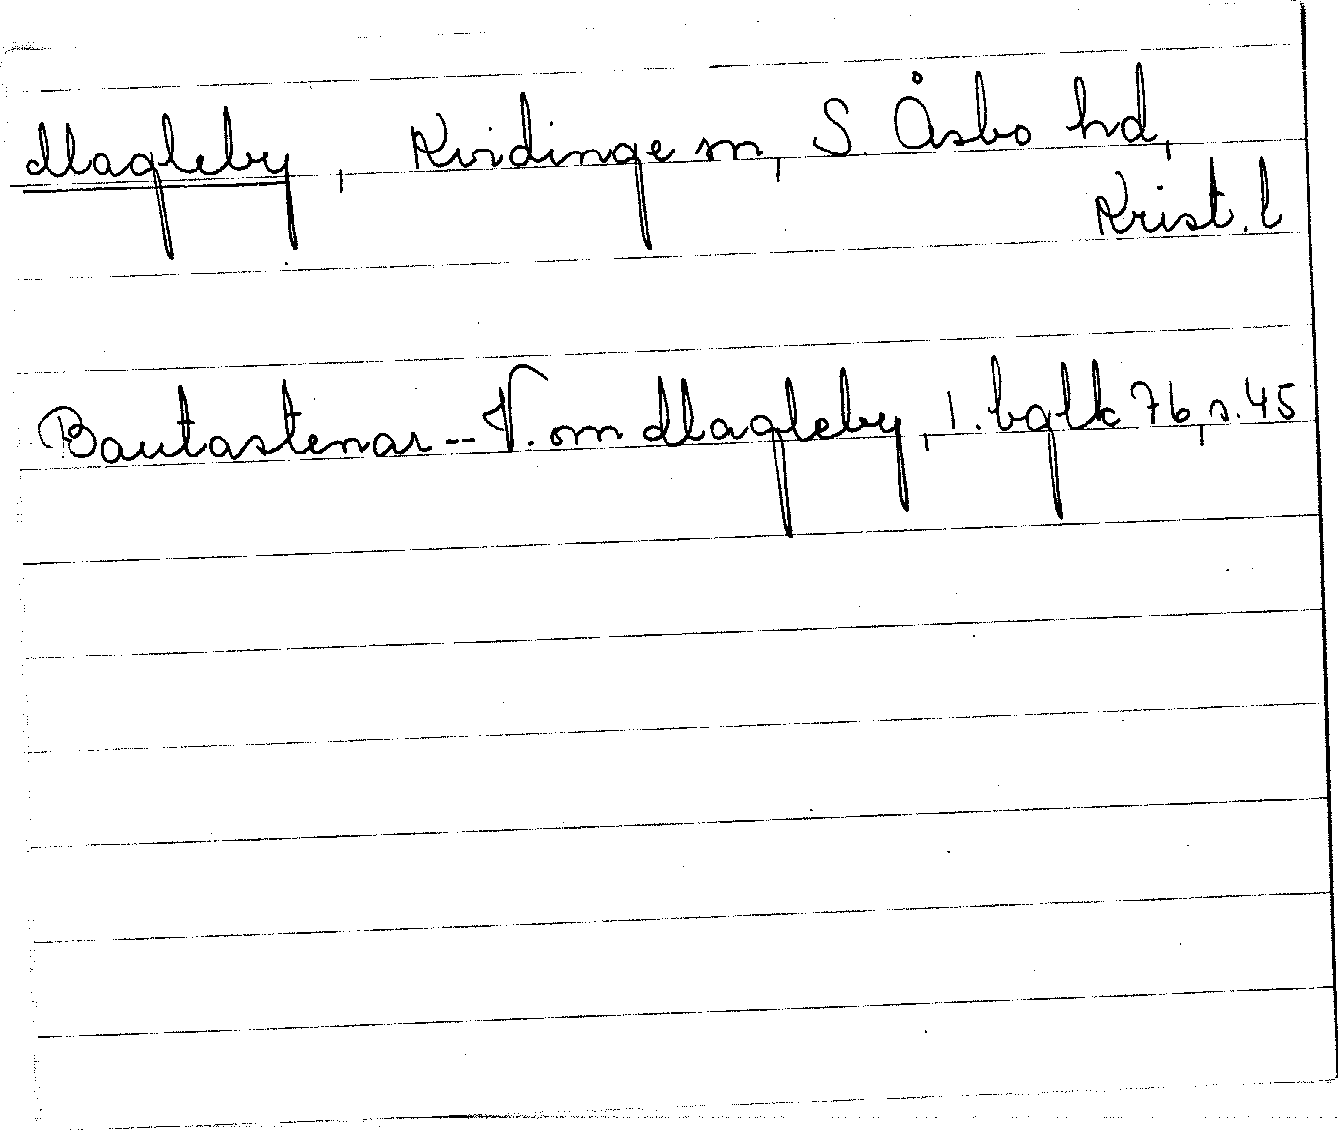 Magleby, Kvidinge sn, S. Åsbo hd,
Krist. l
Bautastenar -- V. om Magleby, l. bglk 76, s. 45